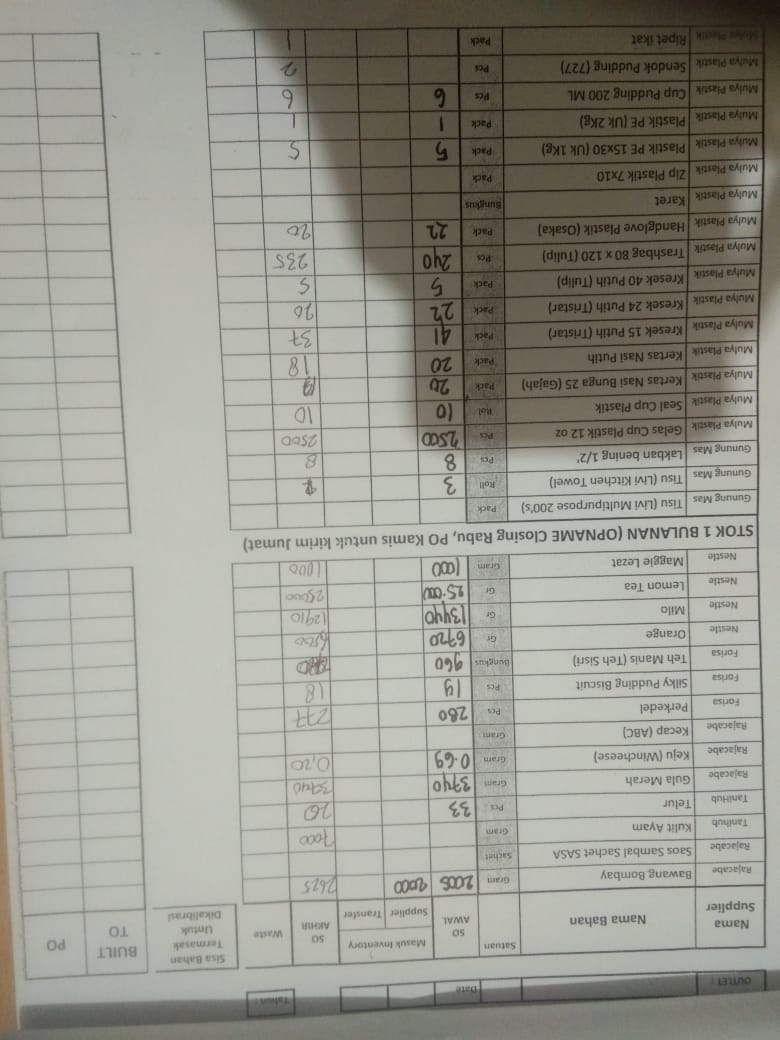 OUTLET : Date Tahun :
Nama Supplier Nama Bahan Satuan SO AWAL Masuk Inventory Supplier Transfer SO AKHIR Waste Sisa Bahan Termasak Untuk Dikalibrasi BUILT TO PO
Rajacabe Bawang Bombay Gram 2005 2000 2625
Rajacabe Saos Sambal Sachet SASA Sachet
Tanihub Kulit Ayam Gram 7000
TaniHub Telur Pcs 33 20
Rajacabe Gula Merah Gram 3740 3740
Rajacabe Keju (Wincheese) Gram 0.69 0,20
Rajacabe Kecap (ABC) Gram
Forisa Perkedel Pcs 280 277
Forisa Silky Pudding Biscuit Pcs 19 18
Forisa Teh Manis (Teh Sisri) Bungkus 960
Nestle Orange Gr 6720
Nestle Milo Gr 13440 12910
Nestle Lemon Tea Gr 25.000 25000
Nestle Maggle Lezat Gram 1000 1000
STOK 1 BULANAN (OPNAME Closing Rabu, PO Kamis untuk kirim Jumat)
Gunung Mas Tisu (Livi Multipurpose 200's) Pack
Gunung Mas Tisu (Livi Kitchen Towel) Roll 3
Gunung Mas Lakban bening 1/2' Pcs 8 8
Mulya Plastik Gelas Cup Plastik 12 oz Pcs 2500 2500
Mulya Plastik Seal Cup Plastik Rol 10 10
Mulya Plastik Kertas Nasi Bunga 25 (Gajah) Pack 20 19
Mulya Plastik Kertas Nasi Putih Pack 20 18
Mulya Plastik Kresek 15 Putih (Tristar) Pack 41 37
Mulya Plastik Kresek 24 Putih (Tristar) Pack 22 20
Mulya Plastik Kresek 40 Putih (Tulip) Pack 5 5
Mulya Plastik Trashbag 80 x 120 (Tulip) Pcs 240 235
Mulya Plastik Handglove Plastik (Osaka) Pack 22 20
Mulya Plastik Karet Bungkus
Mulya Plastik Zip Plastik 7x10 Pack
Mulya Plastik Plastik PE 15x30 (Uk 1Kg) Pack 5 5
Mulya Plastik Plastik PE (Uk 2Kg) Pack 1 1
Mulya Plastik Cup Pudding 200 ML Pcs 6 6
Mulya Plastik Sendok Pudding (727) Pcs 2
Mulya Plastik Ripet Ikat Pack 1